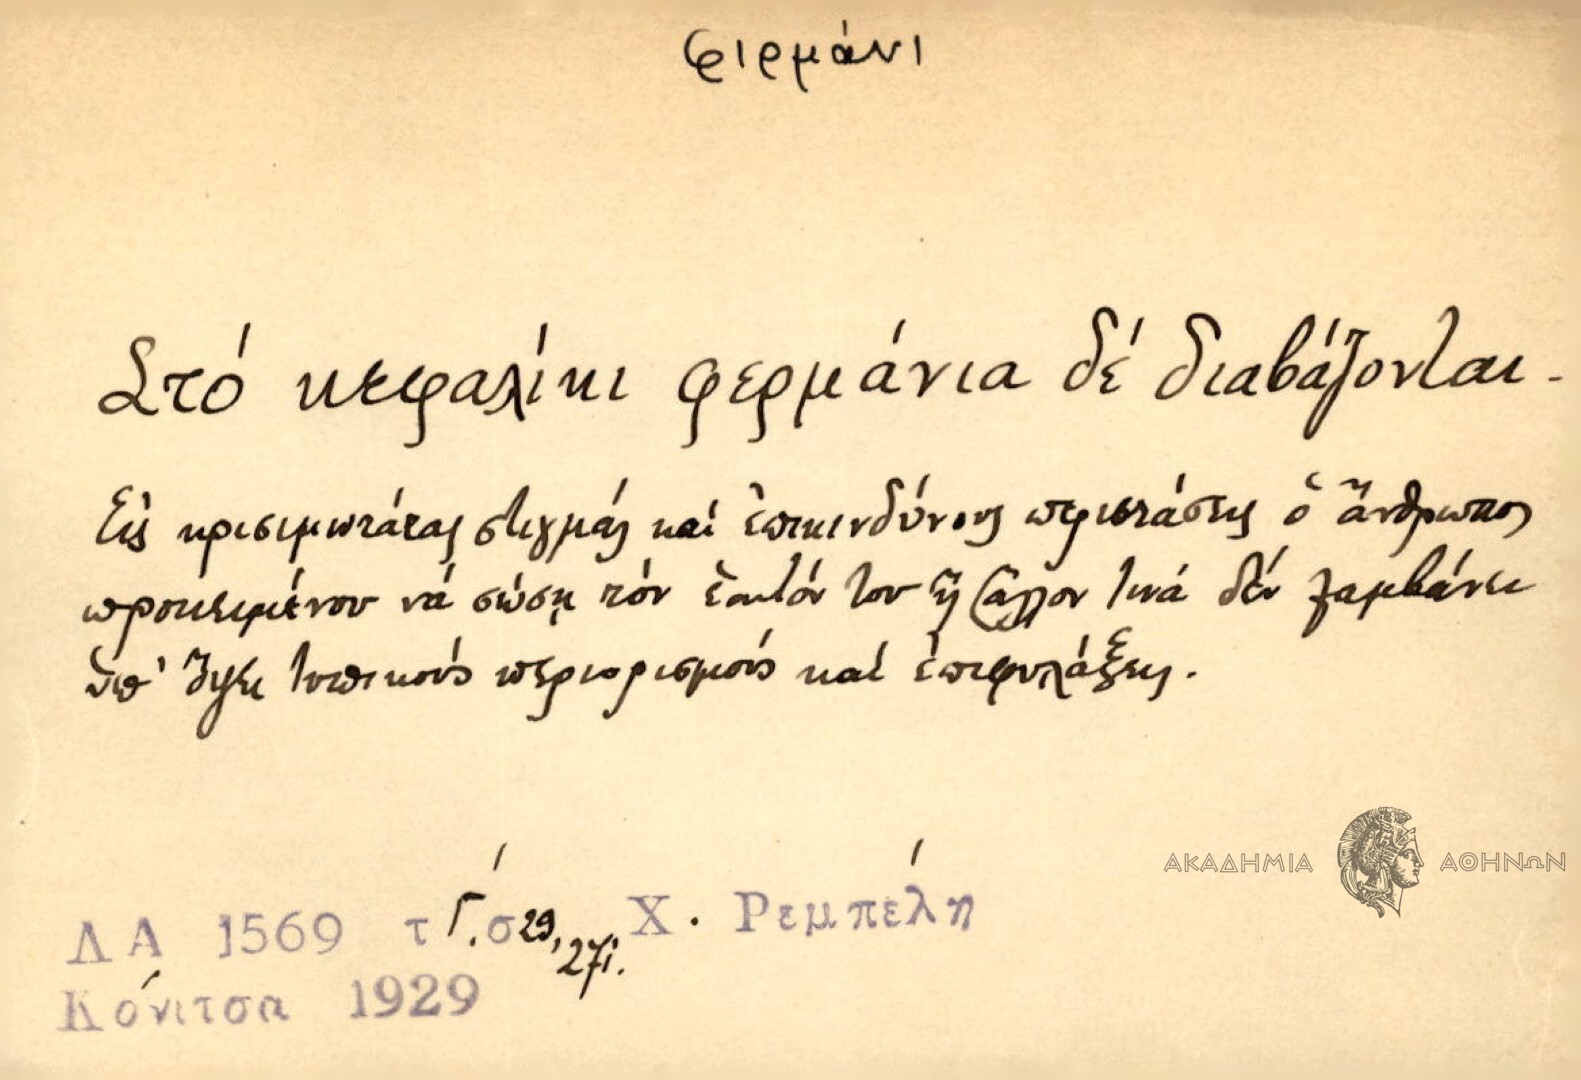 φιρμάνι
Στό κεφαλίκι φερμάνια δέ διαβάζονται.
Εἰς κρισιμωτάτας στιγμάς καί ἐπικινδύνους περιστάσεις ὁ ἄνθρωπος
προκειμένου νά σώσῃ τόν ἑαυτόν του ἤ ἄλλον τινά δέν λαμβάνει
ὑπ' ὄψει τυπικούς περιορισμούς καί ἐπιφυλάξεις.
ΑΚΑΔΗΜΙΑ ΑΘΗΝΩΝ
ΛΑ 1569 τ Γ΄. σ 29, 271. Χ. Ρεμπέλη
Κόνιτσα 1929